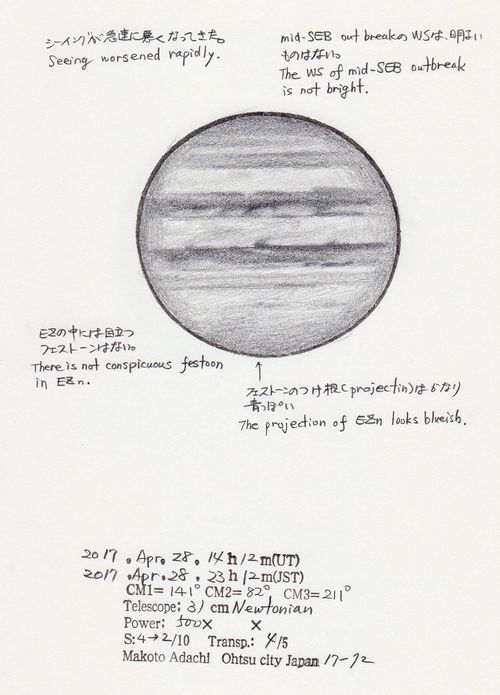 シーイングが急速に悪くなってきた。
Seeing worsened rapidly.
mid-SEB out breakのWSは、明るい
ものはない。
The WS of mid-SEB outbreak
is not bright.
EZの中には目立つ
フェストーンはない。
There is not conspicuous festoon
in EZn.
フェストーンのつけ根(projectin)はかなり
青っぽい
The projection of EZn looks blueish.
2017 . Apr. 28. 14 h 12 m(UT)
2017 . Apr. 28. 23 h 12 m(JST)
CM1= 141° CM2= 82° CM3= 211°
Telescope: 31 cm Newtonian
Power: 500× ×
S: 4→2/10 Transp.: 4/5
Makoto Adachi Ohtsu city Japan 17-72